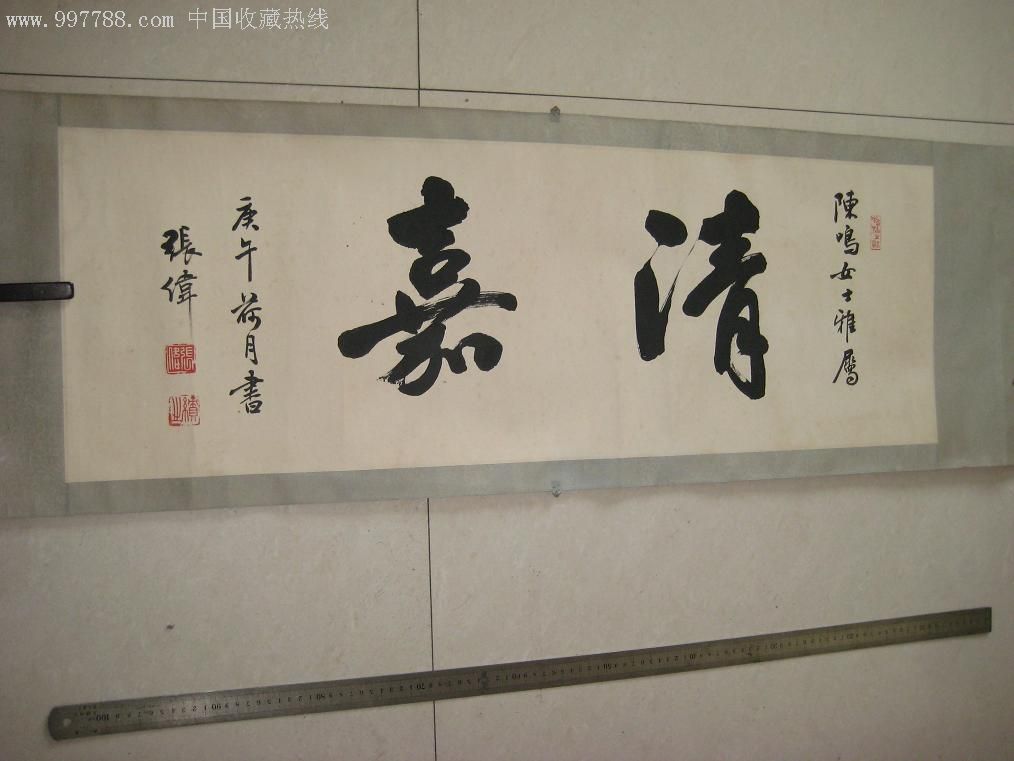 www.997788.com 中国收藏热线
陳鳴女士雅屬
清嘉
庚午荷月書
張偉